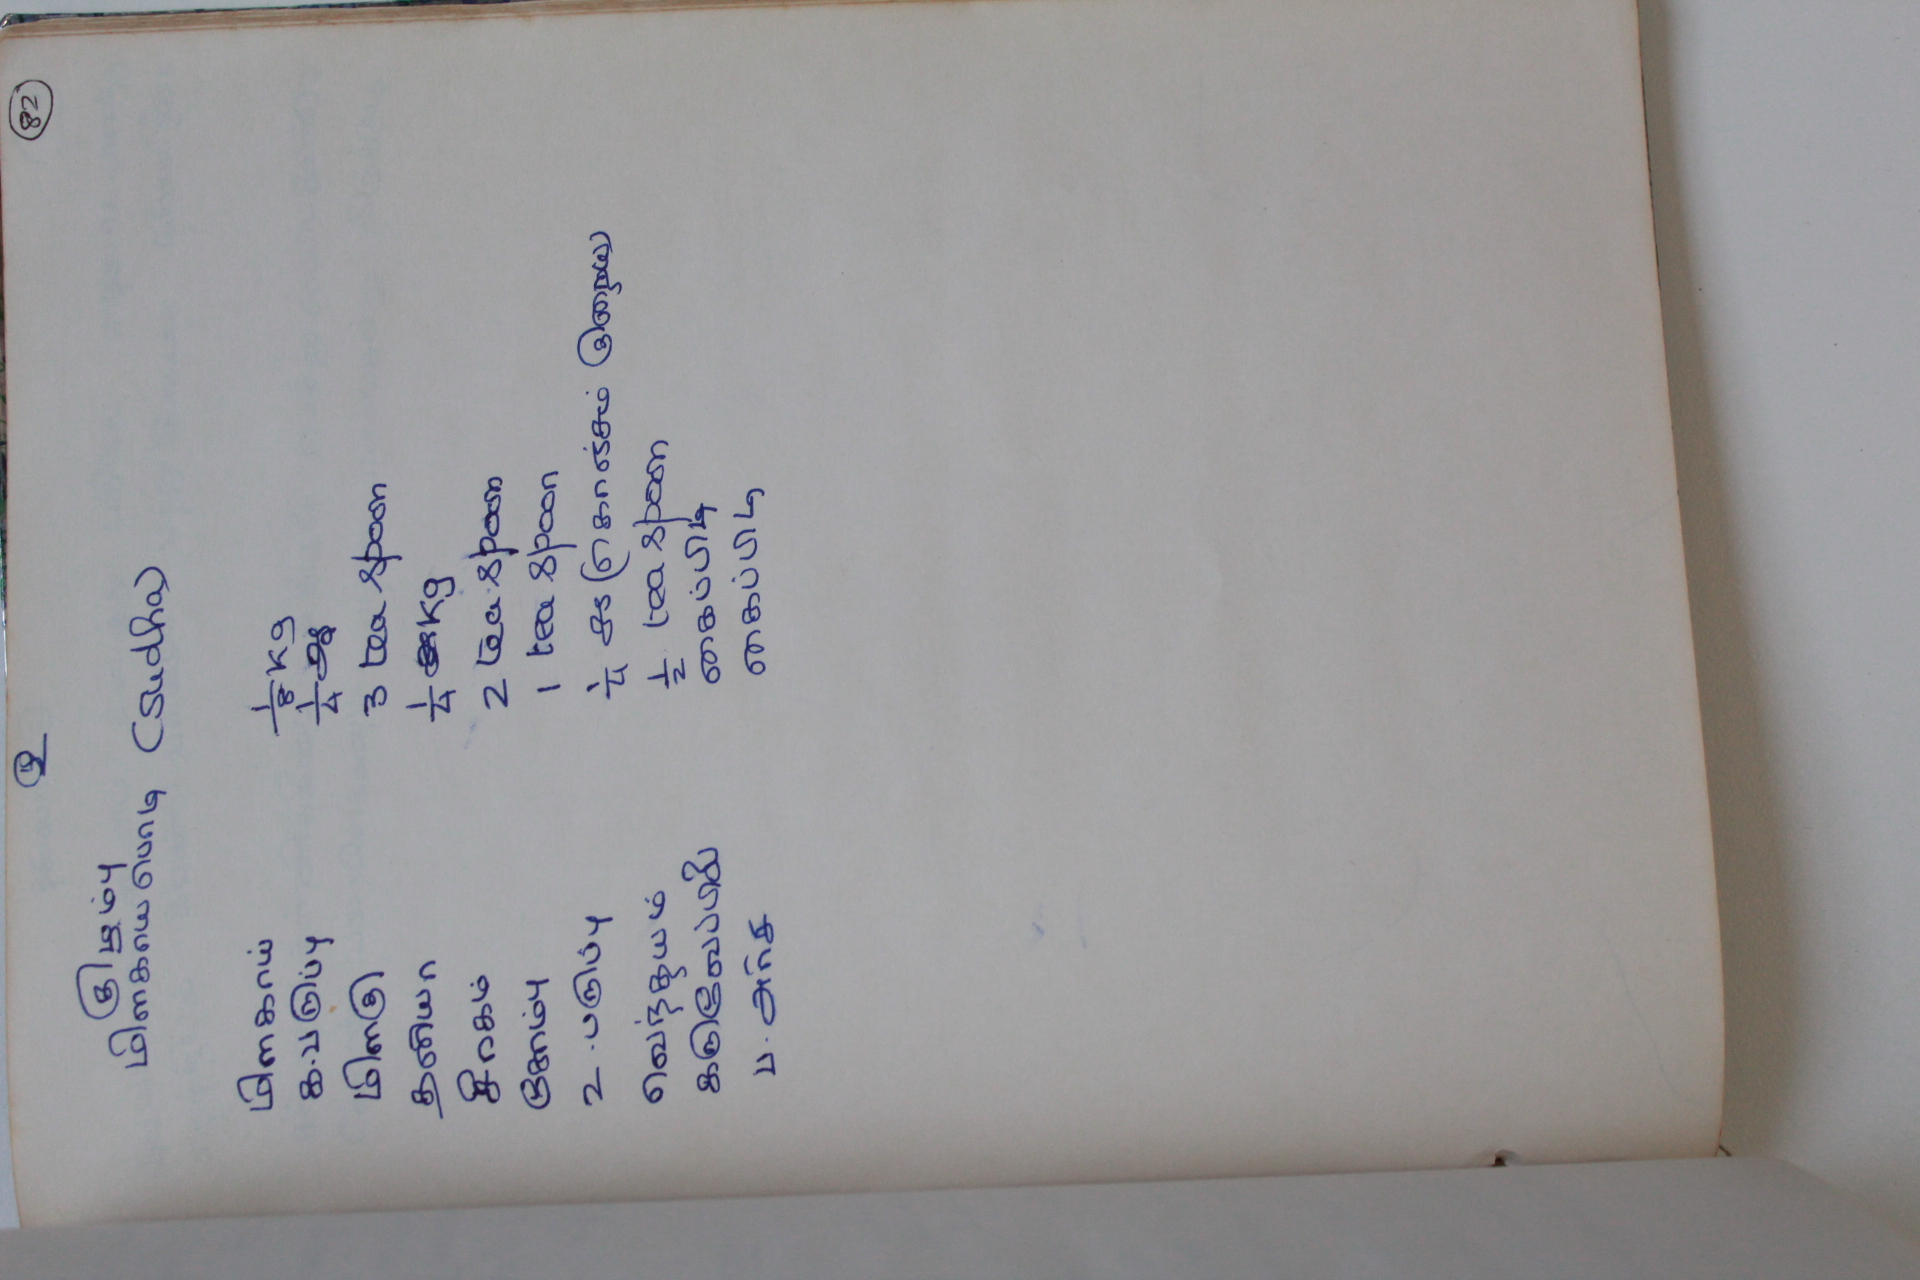 82
உ
குழம்பு
மிளகாய பொடி (Sudha)
மிளகாய் 1/8 Kg
க.பருப்பு 1/4
மிளகு 3 tea spoon
தனியா 1/4 Kg
ஜீரகம் 2 tea spoon
சோம்பு 1 tea spoon
உ.பருப்பு 1/4 கொஞ்சம் குறைய
வெந்தயம் 1/2 tea spoon
கருவேப்பிலை கைப்பிடி
ப.அரிசி கைப்பிடி